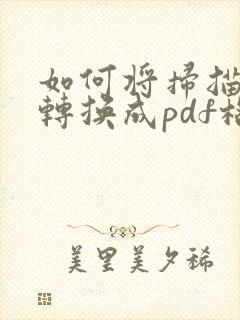 如何将掃描
轉換成pdf格
美里美夕稀